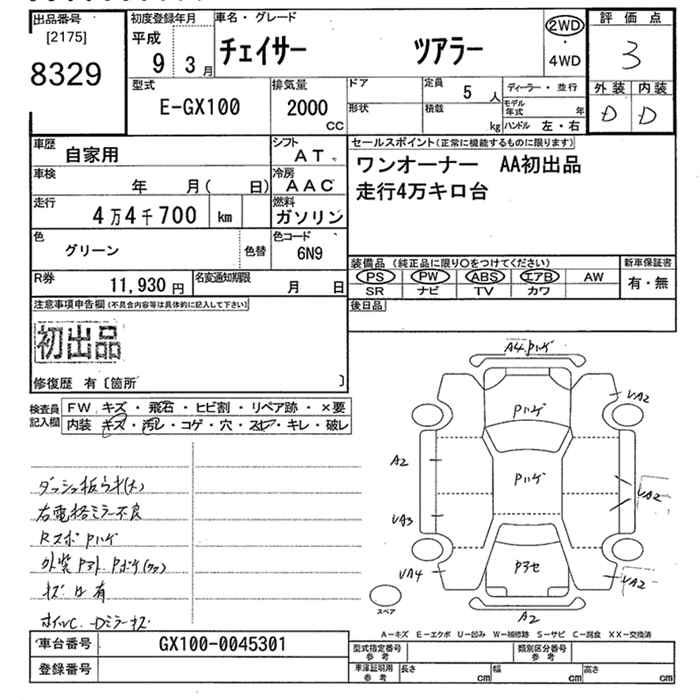 出品番号
[2175]
8329
初度登録年月
平成
9 3月
車名・グレード
チェイサー ツアラー
2WD
・
4WD
評価点
3
外装 内装
D D
型式
E-GX100
排気量
2000
CC
ドア
形状
定員
5人
積載
kg
ディーラー・並行
モデル年式 年
ハンドル 左・右
車歴
自家用
シフト
AT
車検
年 月( 日)
冷房
AAC
走行
4万4千700 km
燃料
ガソリン
色
グリーン
色替
色コード
6N9
R券
11,930円
名変通知期限
月 日
セールスポイント(正常に機能するものに限ります)
ワンオーナー AA初出品
走行4万キロ台
装備品 (純正品に限り○をつけてください)
PS PW ABS エアB AW
SR ナビ TV カワ
新車保証書
有・無
後日品
注意事項申告欄(不具合内容等は具体的に記入して下さい)
初出品
修復歴 有〔箇所 〕
検査員記入欄
FW キズ・飛石・ヒビ割・リペア跡・×要
内装 キズ・汚レ・コゲ・穴・スレ・キレ・破レ
ダッシュ板ウキ(大)
右電格ミラー不良
RスポPハゲ
キズ凹有
A4 Pハゲ
Pハゲ
UA2
A2
Pハゲ
UA2
UA3
UA4
Pアセ
UA2
A2
スペア
A―キズ E―エクボ U―凹み W―補修跡 S―サビ C―腐食 XX―交換済
車台番号
GX100-0045301
登録番号
型式指定番号
参考
類別区分番号
参考
車庫証明用
参考
長さ cm 幅 cm 高さ cm